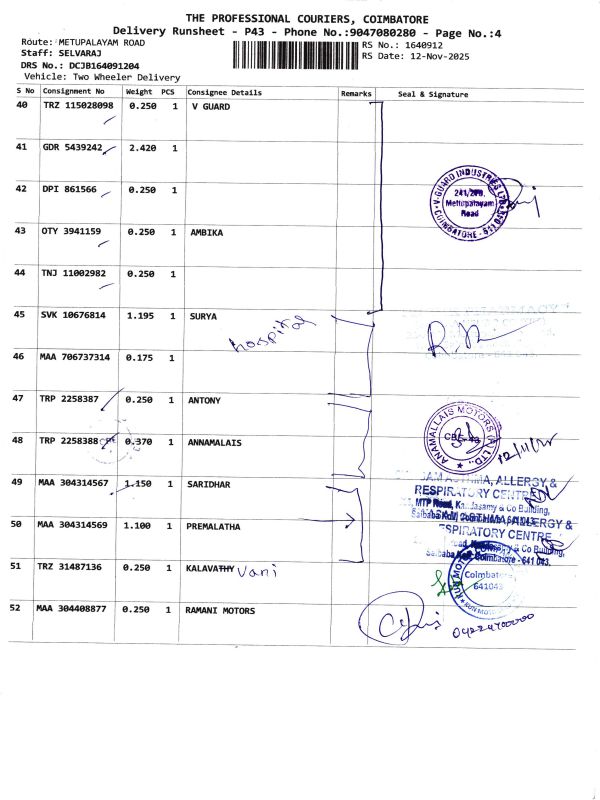 THE PROFESSIONAL COURIERS, COIMBATORE
Delivery Runsheet - P43 - Phone No.:9047080280 - Page No.:4
Route: METUPALAYAM ROAD
RS No.: 1640912
Staff: SELVARAJ
RS Date: 12-Nov-2025
DRS No.: DCJB164091204
Vehicle: Two Wheeler Delivery
S No Consignment No Weight PCS Consignee Details Remarks Seal & Signature
40 TRZ 115028098 0.250 1 V GUARD
41 GDR 5439242 2.420 1
42 DPI 861566 0.250 1
V-GUARD INDUSTRIES LTD
Mettupalayam
Road
COIMBATORE - 641 043
43 OTY 3941159 0.250 1 AMBIKA
44 TNJ 11002982 0.250 1
45 SVK 10676814 1.195 1 SURYA
hospital
46 MAA 706737314 0.175 1
47 TRP 2258387 0.250 1 ANTONY
48 TRP 2258388 0.370 1 ANNAMALAIS
ANAMALLAIS MOTORS (P) LTD.,
CBE-43
12/11/25
49 MAA 304314567 1.150 1 SARIDHAR
ASTHMA, ALLERGY &
RESPIRATORY CENTRE
MTP Road, Kandasamy & Co Building,
50 MAA 304314569 1.100 1 PREMALATHA
ALLERGY &
RESPIRATORY CENTRE
Road, Kandasamy & Co Building,
Saibaba Kovil, Coimbatore - 641 043.
51 TRZ 31487136 0.250 1 KALAVATHY vani
Coimbatore
641043
52 MAA 304408877 0.250 1 RAMANI MOTORS